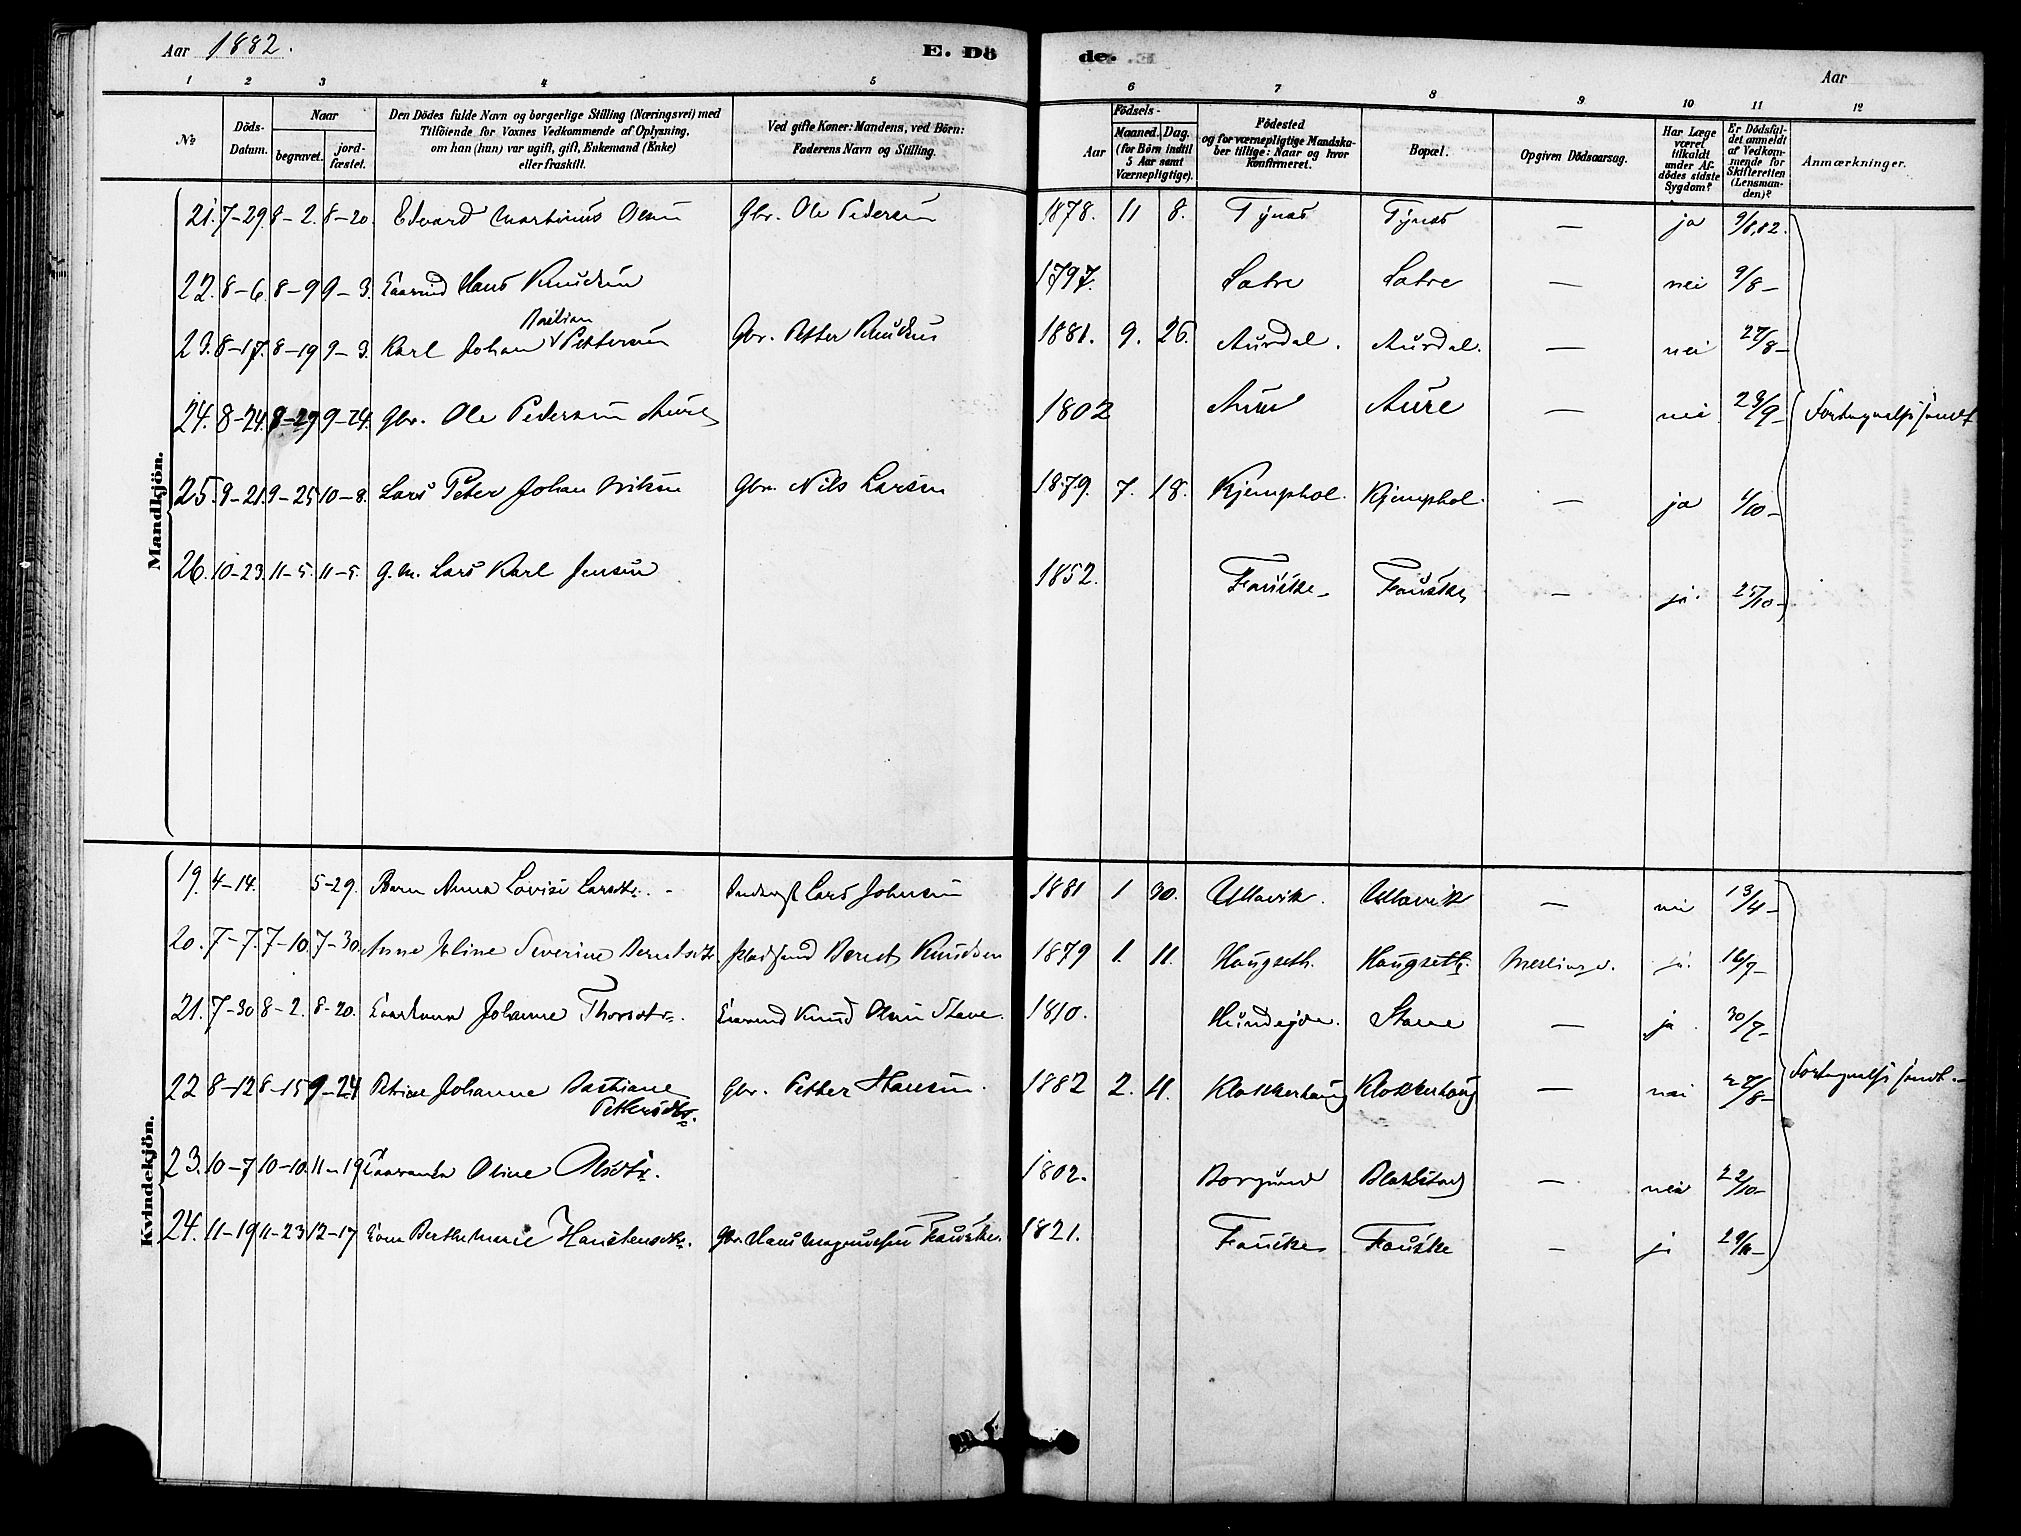 Aar 1882.
E. Dö
de.
Aar
1 2 3 4 5
6 7 8 9 10 11 12
No
Döds-Datum.
Naar
begravet.
jord-fæstet.
Den Dödes fulde Navn og borgerlige Stilling (Næringsvei) med
Tilföiende for Voxnes Vedkommende af Oplysning,
om han (hun) var ugift, gift, Enkemand (Enke)
eller fraskilt.
Ved gifte Koner: Mandens, ved Börn:
Faderens Navn og Stilling.
Födsels-
Aar
Maaned. Dag.
(for Börn indtil
5 Aar samt
Værnepligtige).
Födested
og for værnepligtige Mandska-
ber tillige: Naar og hvor
konfirmeret.
Bopæl.
Opgiven Dödsaarsag.
Har Læge
været
tilkaldt
under Af-
dödes sidste
Sygdom?
Er Dödsfal-
det anmeldt
af Vedkom-
mende for
Skifteretten
(Lensman-
den)?
Anmærkninger.
Mandkjön.
21. 7-29. 8-2. 8-20. Edvard Martinus Olsen Gbr. Ole Pedersen 1878. 11 8. Tynæs Tynæs — ja 9/8,82.
22. 8-6. 8-9 9-3. Hans Knudsen 1797. Satre Satre — nei 9/8-
23. 8-17. 8-19 9-3. Karl Johan Pettersen Gbr. Petter Knudsen 1881. 9. 26. Aurdal. Aurdal. — nei 27/8-
24. 8-24. 8-29 9-24. Gbr. Ole Pedersen Aure 1802 Aure Aure — nei 23/9-
25. 9-21. 9-25 10-8. Lars Peter Johan Nilsen Gbr. Nils Larsen 1879. 7. 18. Kjemphol. Kjemphol. — ja 1/10-
26. 10-23. 11-5. 11-5. g.m. Lars Karl Jensen 1852. Fauske Fauske — ja 25/10-
Kvindekjön.
19. 4-14. 5-29. Barn Anna Lovise Larsdtr. Lars Johnsen 1881 1 30. Ullavik. Ullavik — nei 13/4-
20. 7-7. 7-10. 7-30. Anne Severine Berntsdtr. Pladsmd Bernt Knudsen 1879 1. 11. Haugseth. Haugseth. ja 16/7-
21. 7-30 8-2. 8-20. Johanne Thorsdtr. Knud Olsen Stave. 1810. Stave — ja 30/7-
22 8-12 8-15 9-24 Petrine Johanne Bastiane
Pettersdtr. Gbr. Petter Hansen. 1882 2. 11. Klokkerhaug Klokkerhaug — nei 27/8-
23. 10-7 10-10. 11-19 Oline Olsdtr. 1802. Borgund — nei 22/10-
24. 11-19 11-23 12-17 Kone Berthe Marie Gbr. Hans Magnussen Fauske. 1821. Fauske Fauske — ja